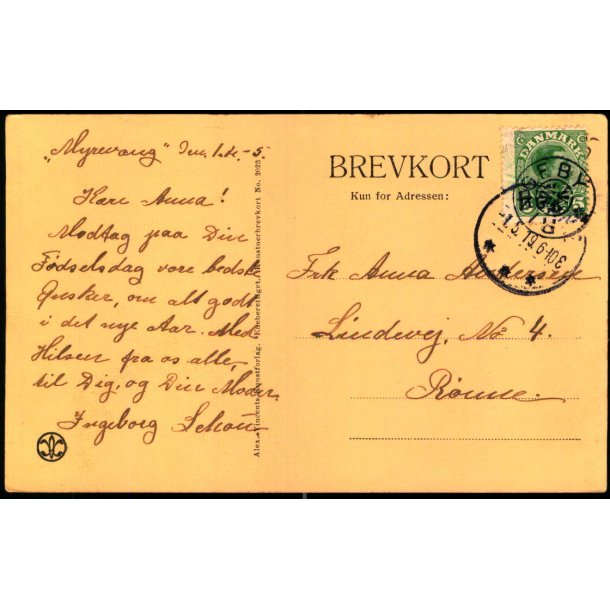 "Myrevang"
Kære Anna!
Modtag paa Din
Fødselsdag vore bedste
Ønsker, om alt godt
i det nye Aar. Med
Hilsen fra os alle,
til Dig, og Din Moder.
Ingeborg Schou
Alex. Vincents Kunstforlag. Eneberettiget. Kunstnerbrevkort No. 2023
BREVKORT
Kun for Adressen:
DANMARK
5
Frk Anna Andersen
Lindevej, No 4.
Rønne.